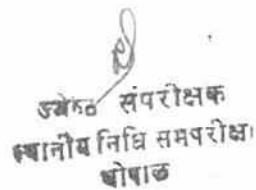 ज्येष्ठ संपरीक्षक
स्थानीय निधि समपरीक्षा
भोपाल